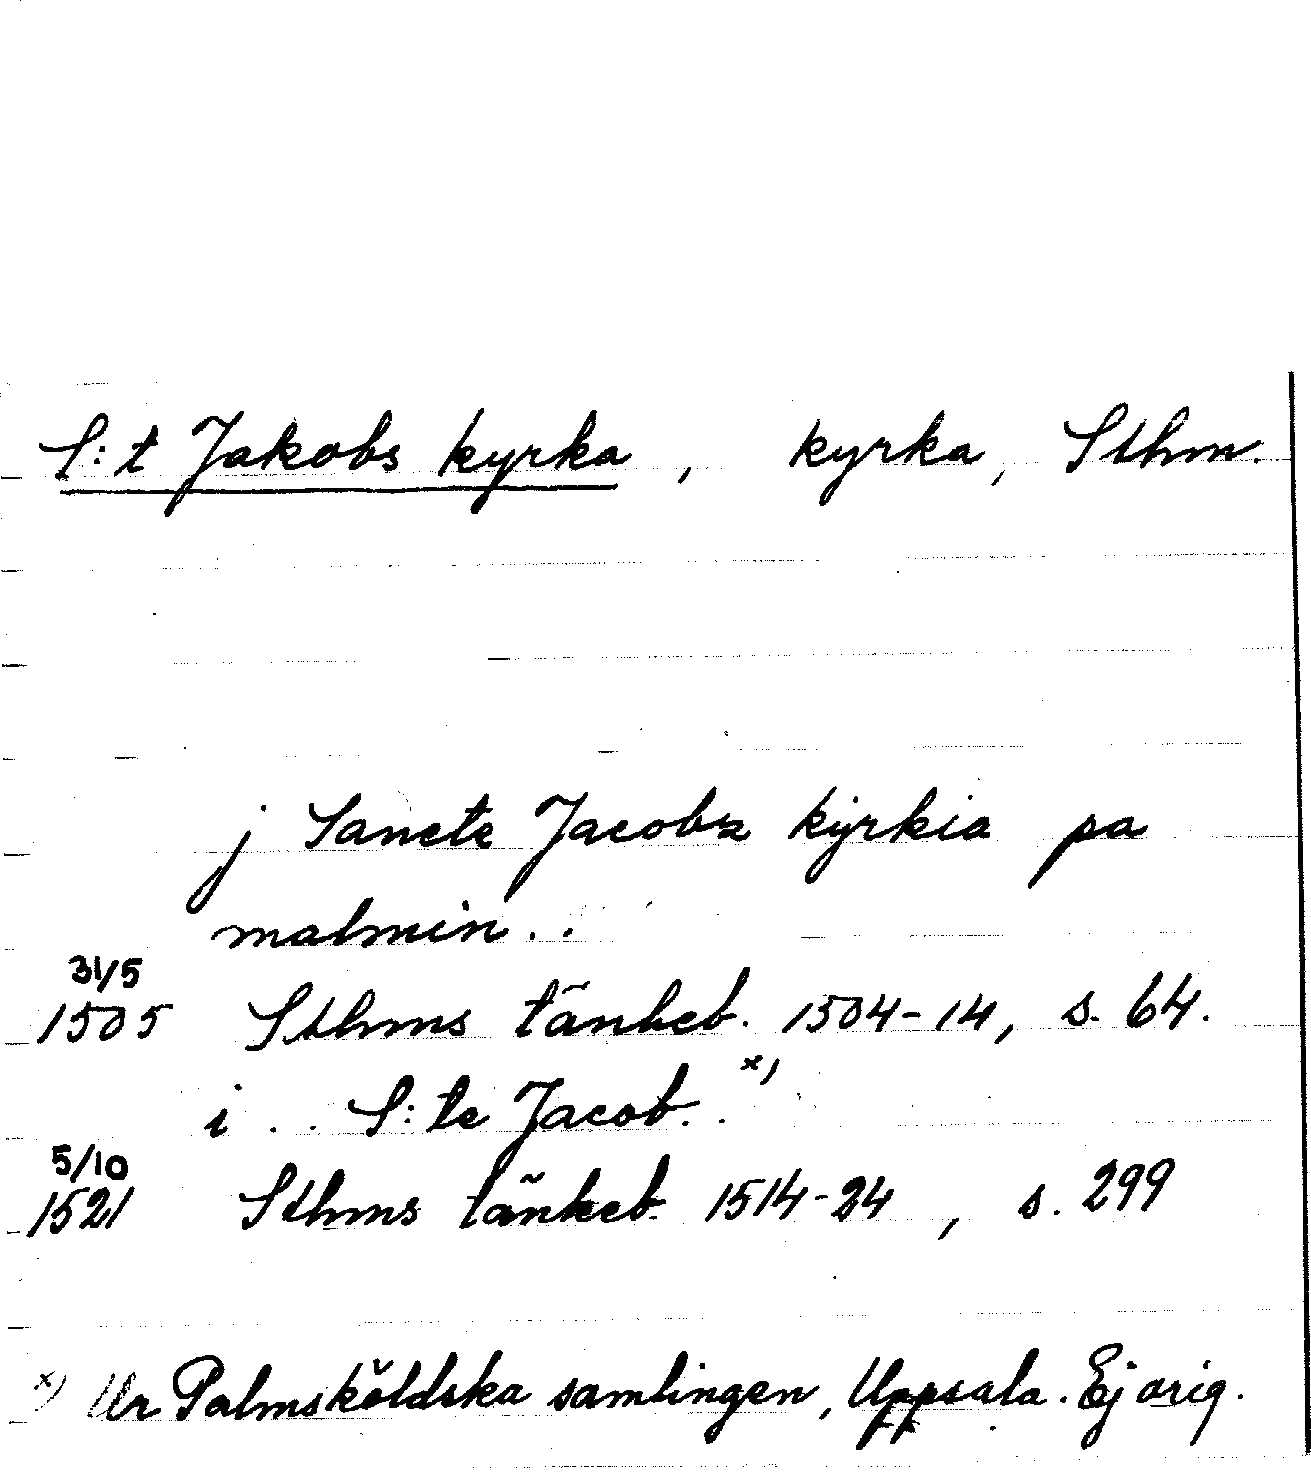 S:t Jakobs kyrka, kyrka, Sthm.
j Sancte Jacobz kÿrkia pa
malmin..
31/5
1505 Sthms tänkeb. 1504-14, s. 64.
i .. S:te Jacob..x)
5/10
1521 Sthms tänkeb. 1514-24, s. 299
x) Ur Palmsköldska samlingen, Uppsala. Ej orig.